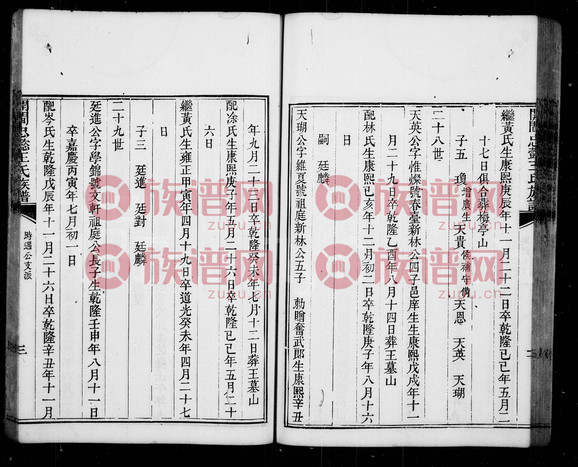 繼黃氏生康熙庚辰年十一月二十二日卒乾隆己巳年五月二
十七日俱合葬梅亭山
子五 瓊增廣生 天貴 天恩 天英 天瑚
二十八世
天英公字惟 號春臺新林公四子邑庠生生康熙戊戌年十一
月二十九日卒乾隆乙酉年八月十四日葬王墓山
配林氏生康熙己亥年十二月初二日卒乾隆庚子年八月十六
日
嗣 廷麟
天瑚公字維夏號祖庭新林公五子 勅贈奮武郎生康熙辛丑
年九月二十三日卒乾隆癸未年七月十三日葬王墓山
配涂氏生康熙庚子年五月二十六日卒乾隆己巳年五月二十
六日
繼黃氏生雍正甲寅年四月十九日卒道光癸未年四月二十七
日
子三 廷進 廷對 廷麟
二十九世
廷進公字學錦號文軒祖庭公長子生乾隆壬申年八月十一日
卒嘉慶丙寅年七月初一日
配岑氏生乾隆戊辰年十一月二十六日卒乾隆辛丑年十一月
開閩忠懿王氏族譜
時遇公支派
三
族谱网
zupu.cn
族谱网
zupu.cn
族谱网
zupu.cn
族谱网
zupu.cn